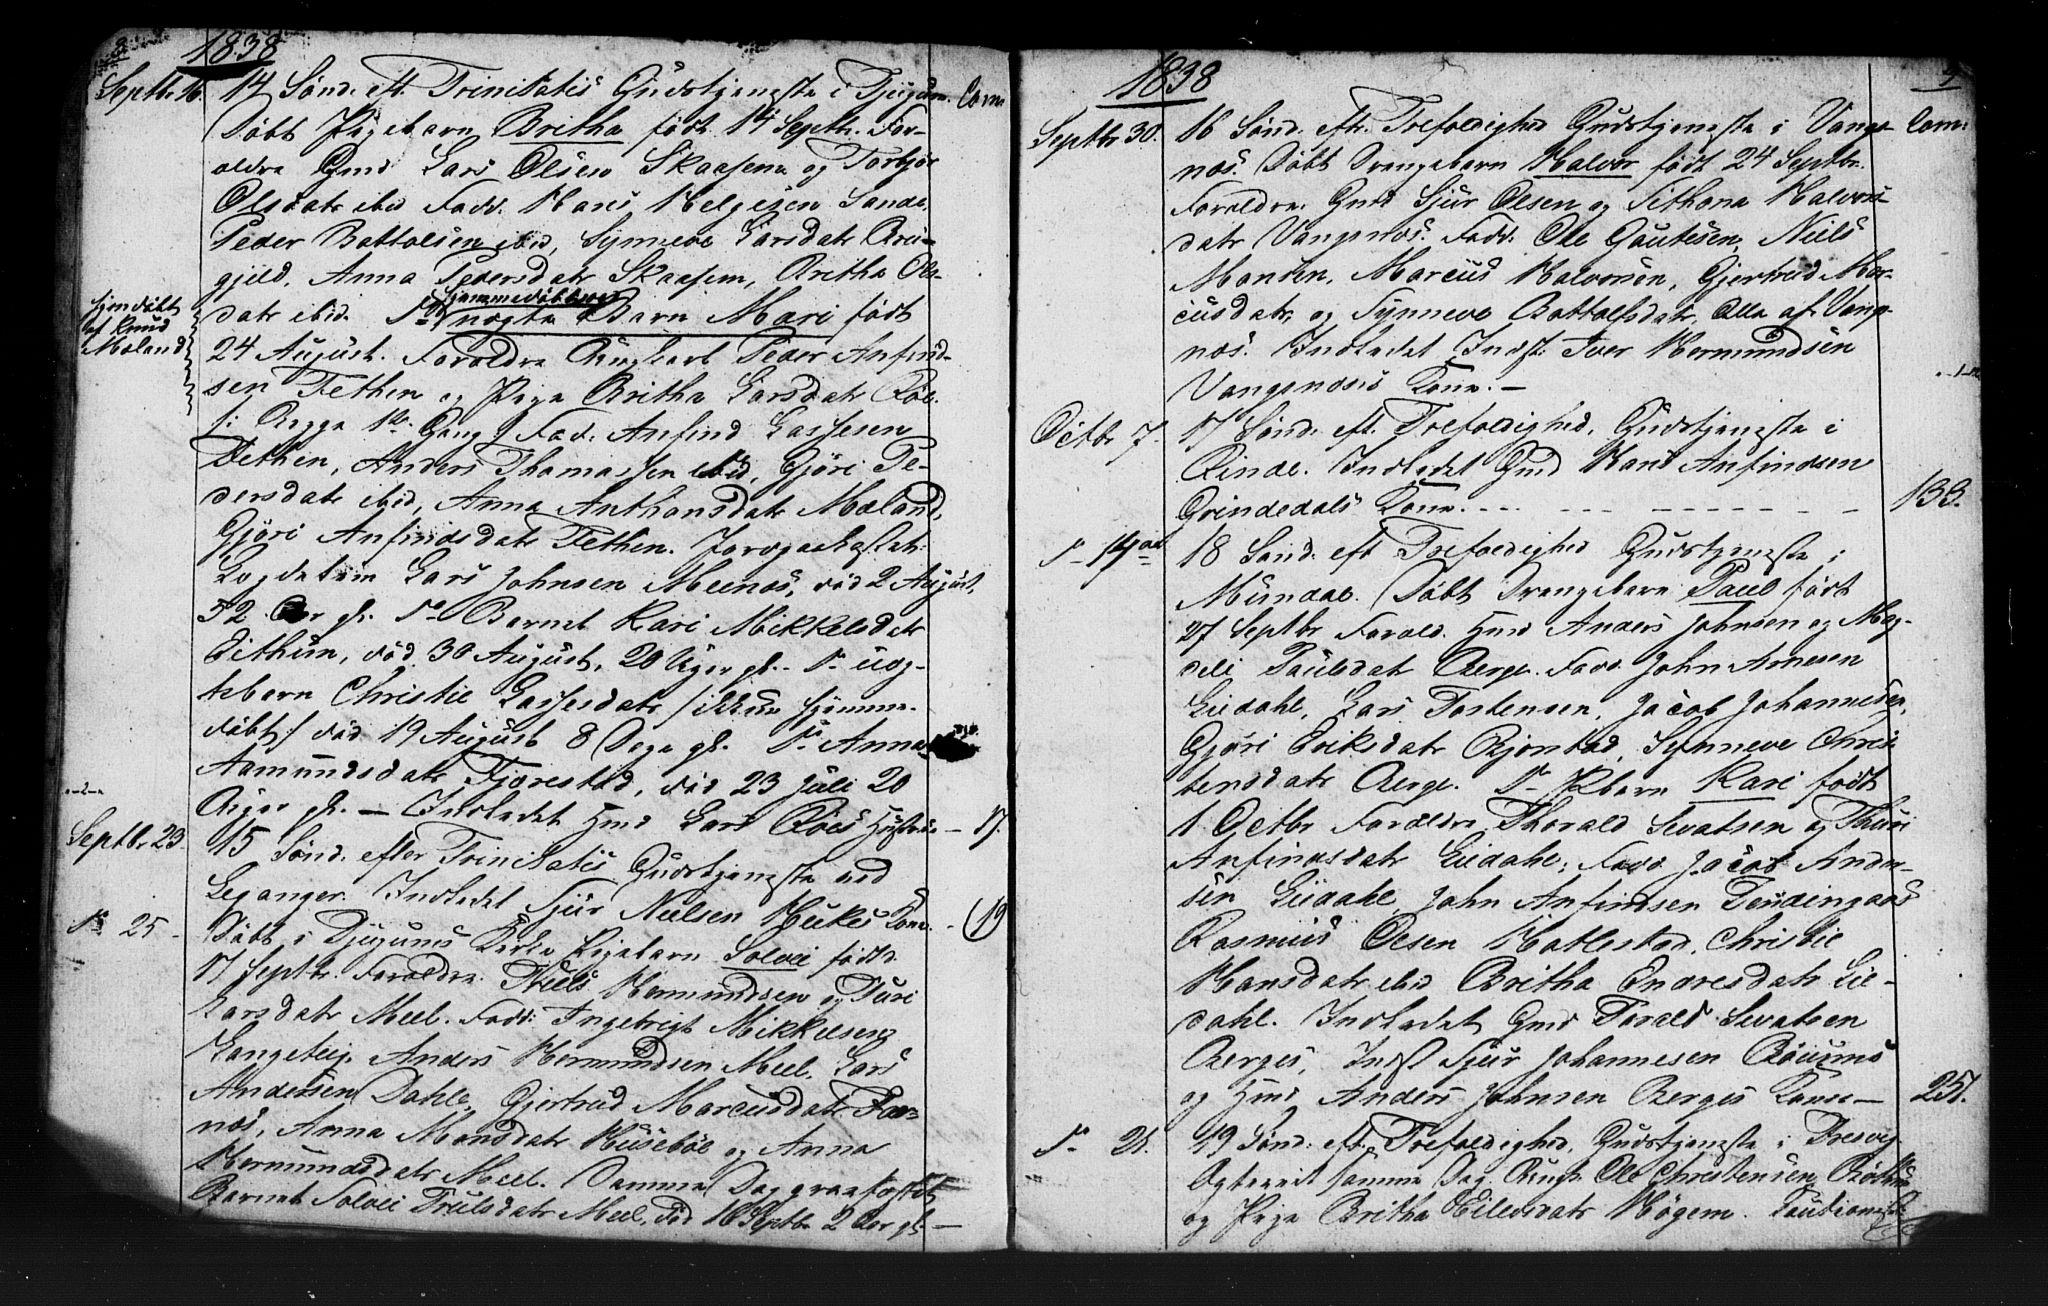 1838
Septbr 16. 14 Sönd. eft. Trinitatis Gudstjeneste i Tjugum. Com:
Döbt Pigebarn Britha födt 14 Septbr. For-
ældre Gmd Lars Olsen Skaasem og Torbjör
Olsdatr ibid Fadd. Hans Helgesen Sande,
Peder Bottolsen ibid, Synneve Larsdatr Brei-
gjeld, Anna Pedersdatr Skaasem, Britha Ols-
hjemmedöbt af Knud Moland
datr ibid. Do hjemmedöbt uægte Barn Mari födt
24 August. Forældre Ungkarl Peder Anfind-
sen Fethen og Pige Britha Larsdatr Röe.
/: Begge 1ste Gang :/ Fad. Anfind Lassesen
Fethen, Anders Thomassen ibid, Gjöri Pe-
dersdatr ibid, Anna Anthonsdatr Moland,
Gjöri Anfindsdatr Fethen. Jordpaakastet:
Lars Johnsen Meenes, död 2 August,
52 Aar gl. Do Barnet Kari Mikkelsdatr
Eithun, död 30 August, 20 Uger gl. Do uæg-
tebarn Christie Lassesdatr /: ikkun hjemme-
döbt :/ död 19 August 8 Dage gl. Do Anna
Aamundsdatr Fjærestad, död 23 Juli 20
Uger gl. — Indledet Gmd Lars Röes Hustrue — 17.
Septbr. 23. 15 Sönd. efter Trinitatis Gudstjeneste ved
Leganger. Indledet Sjur Nielsen Hukes Kone. - 19
Do 25 - Döbt i Tjugums Kirke Pigebarn Solvei födt
17 Septbr. Forældre Truls Hermundsen og Turi
Larsdatr Meel. Fadd: Ingebrigt Mikkelsen
Langeteig Anders Hermundsen Meel. Lars
Andersen Dahle, Gjertrud Marcusdatr Far-
næs, Anna Monsdatr Huseböe og Anna
Hermundsdatr Meel. Samme Dag graafæstet
Barnet Solvei Trulsdatr Meel, död 16 Septbr 2 Aar gl —
1838
Septbr 30. 16 Sönd. eftr. Trefoldighed Gudstjeneste i Vangs- Com:
næs. Döbt Drengebarn Halvor födt 24 Septbr.
Forældre: Gmd Sjur Olsen og Sithona Halvors-
datr Vangsnæs. Fadd. Ole Gautesen, Niels
Monsen, Marcus Halvorsen, Gjertrud Mar-
cusdatr, og Synneve Bottolfsdatr, Alle af Vangs-
næs. Indledet Indst. Iver Hermundsen
Vangsnæsis Kone. —
Octbr 7. 17 Sönd. eft. Trefoldighed. Gudstjeneste i
Rinde. Indledet Gmd Hans Anfindsen
Grindedals Kone. 133.
Do 14de 18 Sönd. eft Trefoldighed Gudstjeneste i
Mundal. Döbt Drengebarn Paul födt
27 Septbr Foræld. Gmd Anders Johnsen og Mag-
deli Paulsdat Berge. Fadd. John Arnesen
Lidahl, Lars Torstensen, Jacob Johannesen,
Gjöri Eriksdatr Bjorstad, Synneve Chris-
tensdatr Berge. Do Pbarn Kari födt
1 Octbr Forældre Thorald Sevatsen og Thuri
Anfindsdatr Lidahl; Fadd Jacob Ander-
sen Lidahl, John Anfindsen
Rasmus Olsen Hatlestad, Christie
Hansdatr ibid Britha Endresdatr Li-
dahl. Indledet Gmd Torald Sevatsen
Berges, Indst Sjur Johannesen Böiums
og Gmd Anders Johnsen Berges Koner — 251.
Do 21. 19 Sönd. eft. Trefoldighed, Gudstjeneste i Fresvig
Og samme Dag Ungk Ole Christensen
og Pige Britha Eilevsdatr Högem.